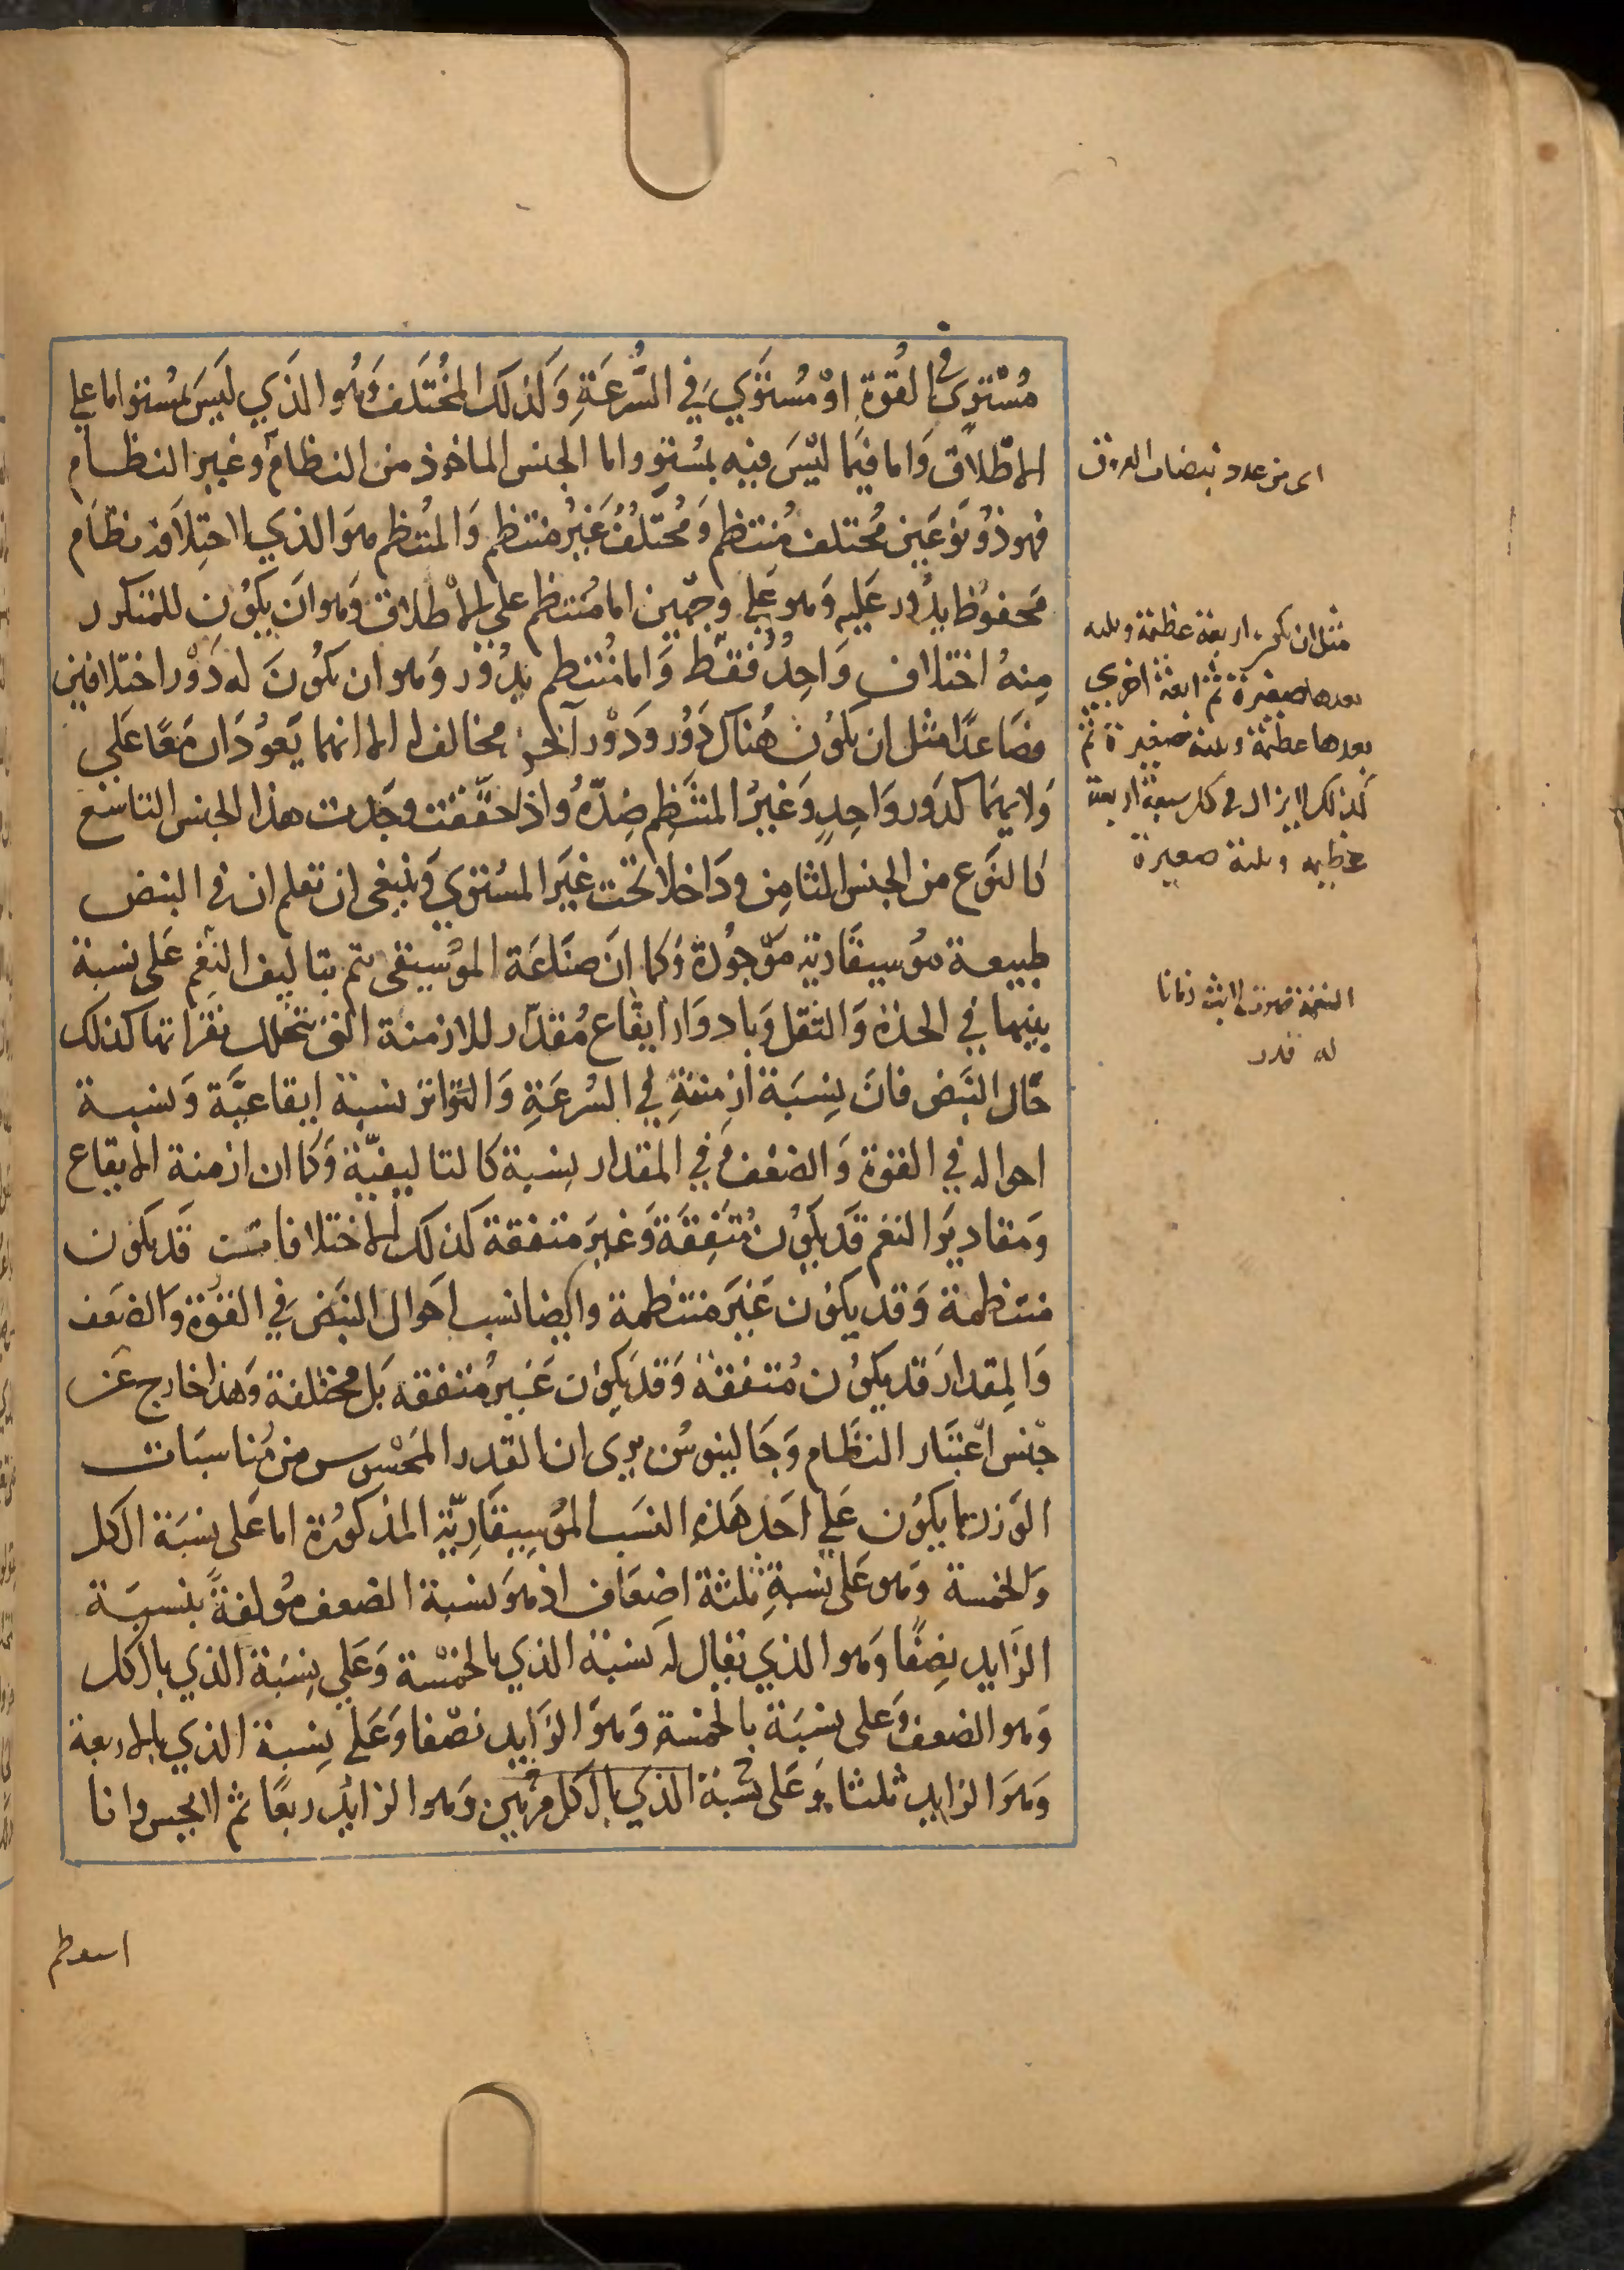 مُسْتَوِي في القُوة اوْ مُستَوَي في السُّرعَةِ وَكذلكَ المُختَلف وَهُوا الذَي لَيسَ بمُستوٍ اما علي
الاطلَاق وَاما فيمَا ليْسَ فيه بمُستوٍ واما الجنس الماخوذ من النظام وغير النظام
فهو ذُو نوعَين مُختلف مُنتظم وَمُختَلفُ غَيرُ منتظم وَالمُنتظم هوَ الذي لاختِلاَفه نظَام
مَحفوُظ يَدُور عَليه وَهو عَلي وجهين اما مُنتظم علي الاطلاق وَهو ان يَكُون للمتكرر
مِنهُ اختلاف وَاحِدُ فقط وَاما مُنتظم يدُور وَهو ان يكُونَ له دَوْر اختلافين
فصَاعدًا مثل ان يكوُن هُناكَ دَوُر وَدَوْر آخر مخالف له الا انهما يَعوُدَان مَعًا عَلي
وَلايهمَا كدَور وَاحِدٍ وَغيرُ المنتَظِم ضِدّهُ واذا حَقّقت وجَدت هذا الجنس التاسع
كالنَوع من الجنس الثامِن ودَاخلا تحت غَير المسُتوي وَينبغي ان تعلم ان في النبض
طبيعة مُوسيقَارية مَوجُودة وَكما انَ صنَاعَة الموُسيقي تتم بتاليف النَغم عَلي نسبة
بينهما في الحدة وَالثقل وَبادوَار ايقَاع مُقدّر للازمنة التي تتخلل نقَراتها كذلك
حَال النَبض فانَ نِسبَة ازمنتِهِ في السُرعَةِ وَالتَواتر نسبة ايقاعيَّة وَنسبة
احواله في القوة وَالضعف وَفي المقدار نِسبة كالتاليفيّة وَكما ان ازمنة الايقاع
وَمقاديرَ النغم قَد يَكوُن مُتَفِقةَ وَغيرَ متفقة كذلكَ الاختلافات قَد يكوُن
منتظمة وَقد يكوُن غَيرَ منتظمة وايضا نسب احَوال النبَض في القوُة وَالضَعف
وَالمِقدارَ قد يَكوُن مُتفقة وَقد يَكوُن غَير مُتفقه بَل مختلفة وَهذا خارج عَن
جنس اعْتبَار النظَام وَجَالينوسُ يرى ان القدر المَحسْوس من مُناسبَات
الوَزن ما يكوُن عَلي احَد هَذه النسَب الموُسيقَارِيّة المذكورُة اما عَلي نِسبَة الكل
وَالخمسة وَهو عَلي نسبةِ ثلثة اضعَاف اذ هوَ نسبة الضعف مُولفةً بنسبَة
الزَايد نِصفًا وَهو الذي يقال له نسبَة الذي بالخمْسة وَعَلي نِسبَة الذي بالكل
وَهو الضعف وَعلي نسبَة بالخمسة وَهوَ الزَايد نصْفا وَعَلي نِسبة الذي بالاربعة
وَهوَ الزايد ثلثا وَعَلي نسْبة الذي بالكل مرتين وَهو الزايدُ ربعًا ثم لا يحس وانا
استعظم
اى من عدد نبضات العروق
مثل ان يكون اربعة عظيمة وثلثه
بعدها صغيرة ثم اربعة اخري
بعدها عظيمة وثلثة صغيرة ثم
كذلك لا يزال في كل سبعة اربعة
عظيمه وثلثة صغيرة
النغمة صوت لابث زمانا
له قدر